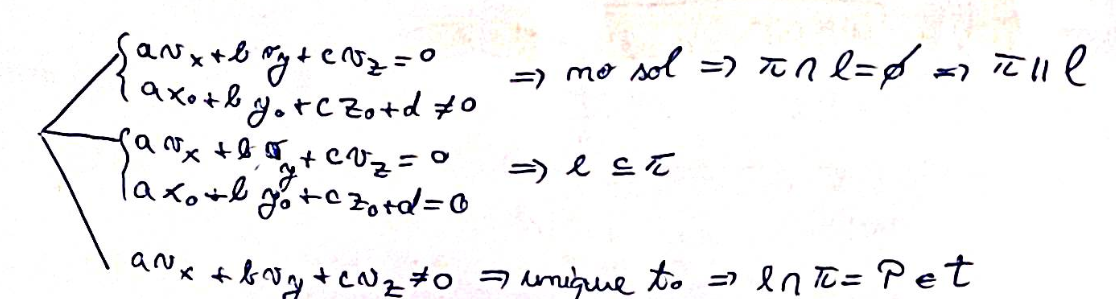 { avₓ + bv_y + cv_z = 0
{ ax₀ + by₀ + cz₀ + d ≠ 0 ⇒ no sol ⇒ π ∩ l = ∅ ⇒ π ∥ l
{ avₓ + bv_y + cv_z = 0
{ ax₀ + by₀ + cz₀ + d = 0 ⇒ l ⊆ π
avₓ + bv_y + cv_z ≠ 0 ⇒ unique t₀ ⇒ l ∩ π = P e t